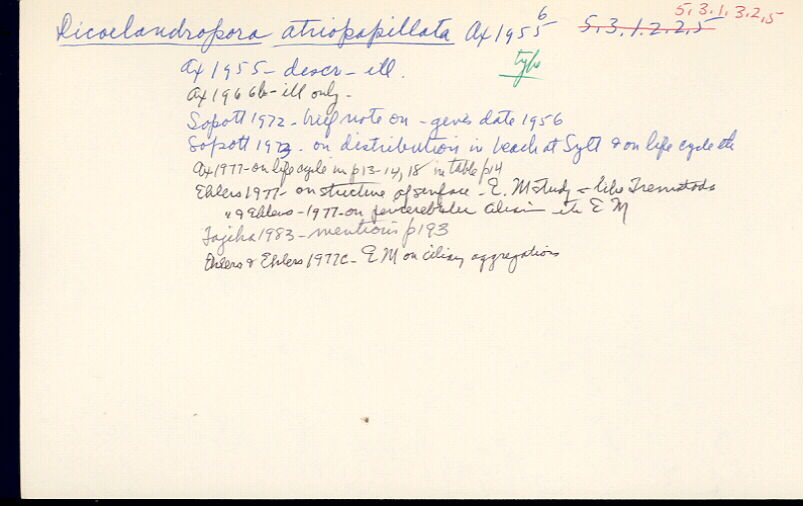 5.3.1.3.2.5
Dicoelandropora atriopapillata Ax 1955 6 5.3.1.2.2.5
Ax 1955 - descr - ill. type
Ax 1966b - ill only -
Sopott 1972 - brief note on - gives date 1956
Sopott 1973 - on distribution in beach at Sylt & on life cycle etc
Ax 1977 - on life cycle in p13-14, 18 in table p14
Ehlers 1977 - on structure of surface - E. M study - like Trematoda
" & Ehlers - 1977 - on percerebular etc E M
Tajika 1983 - mentions p193
Ehlers & Ehlers 1977c - E M on ciliary aggregations